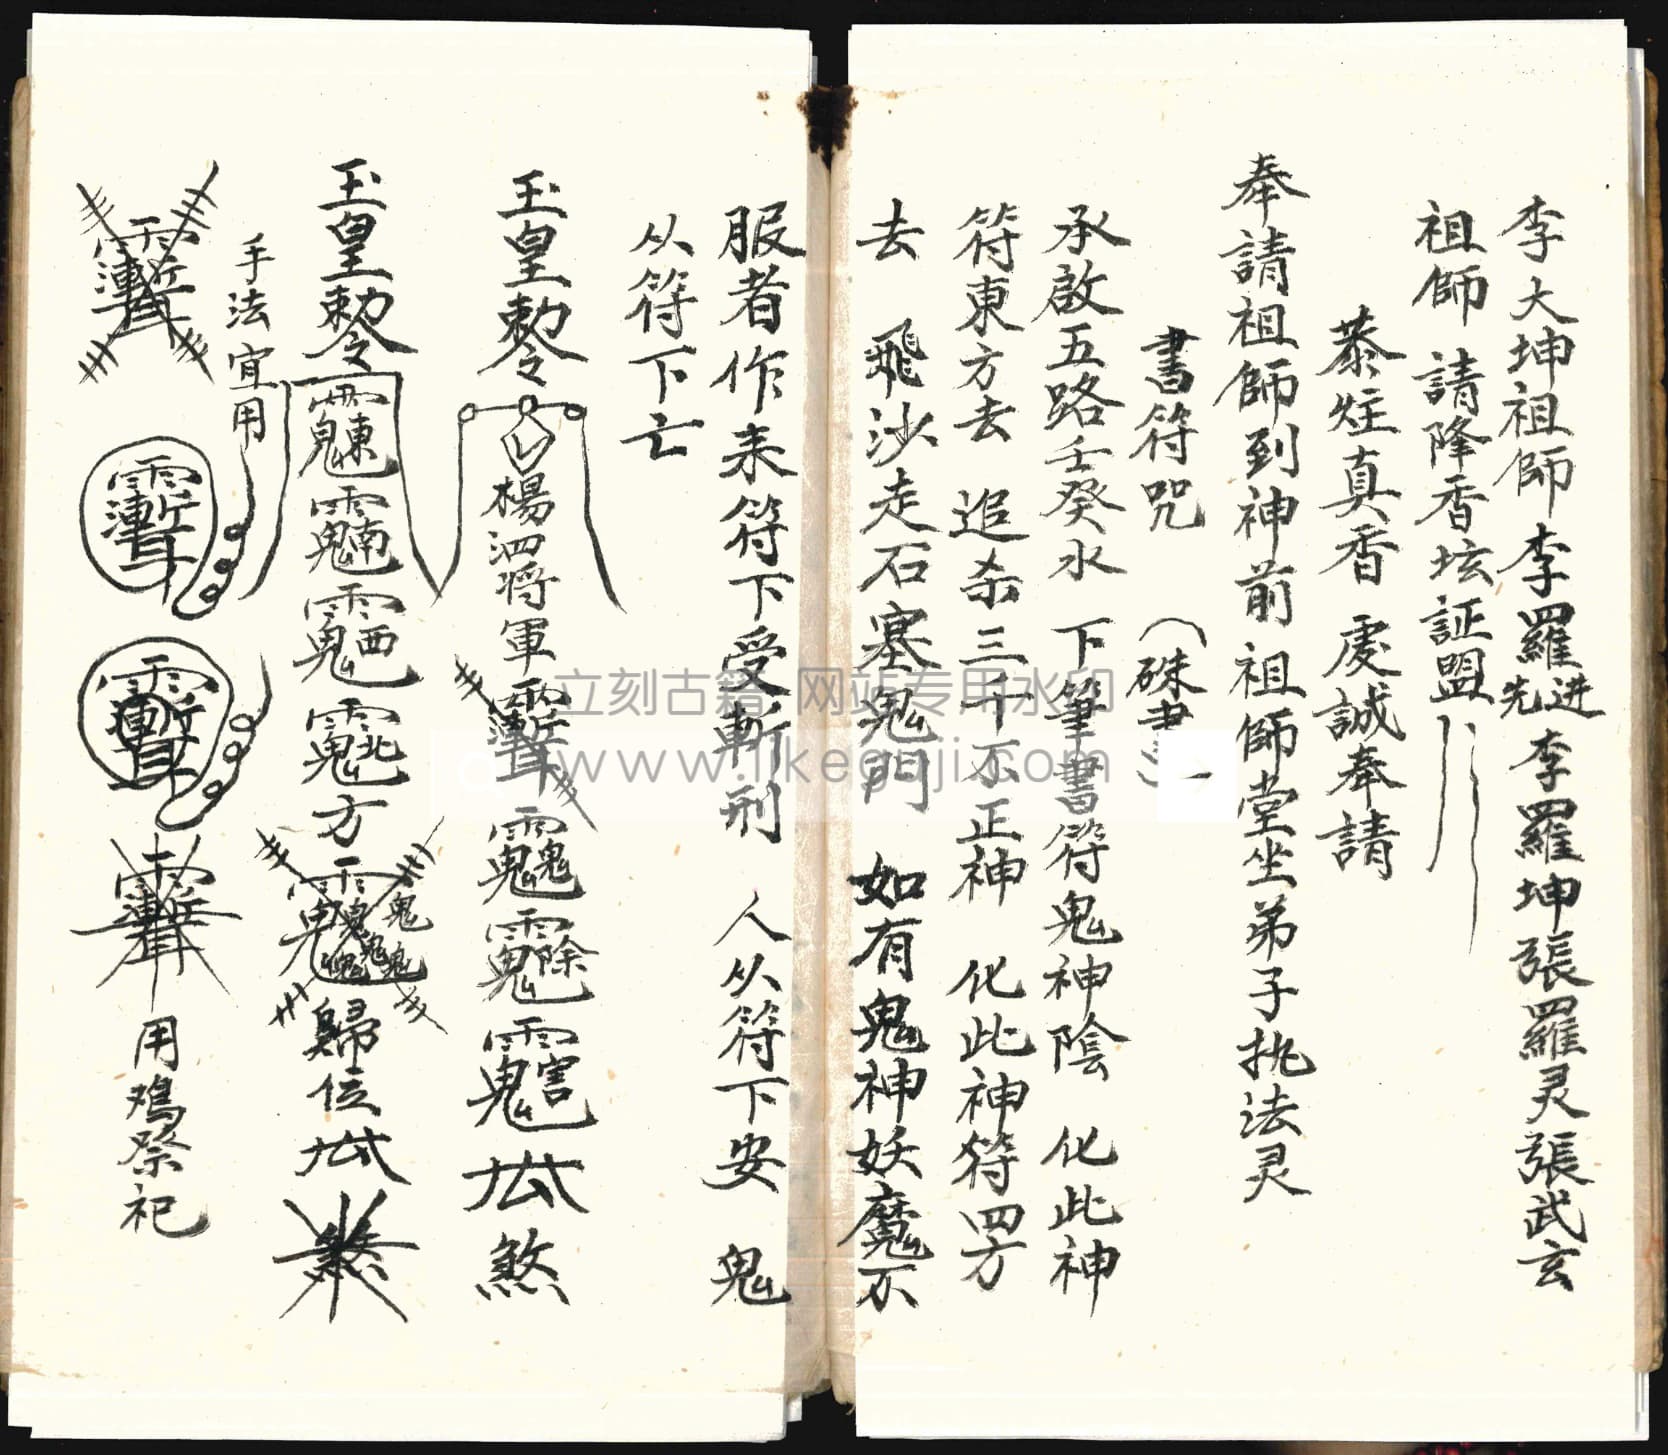 李大坤祖師李羅进先李羅坤張羅灵張武玄
祖師 請降香坛証盟
恭炷真香 虔誠奉請
奉請祖師到神前祖師堂坐弟子执法灵
書符咒 (硃書)
承啟五路壬癸水 下筆書符鬼神陰 化此神
符東方去 追杀三千不正神 化此神符四方
去 飛沙走石塞鬼門 如有鬼神妖魔不
服者作耒符下受斬刑 人从符下安 鬼
从符下亡
玉皇勅令 楊泗将軍 煞
玉皇勅令 方 歸位
手法宜用
用鸡祭祀
立刻古籍 网站专用水印
www.likeguji.com